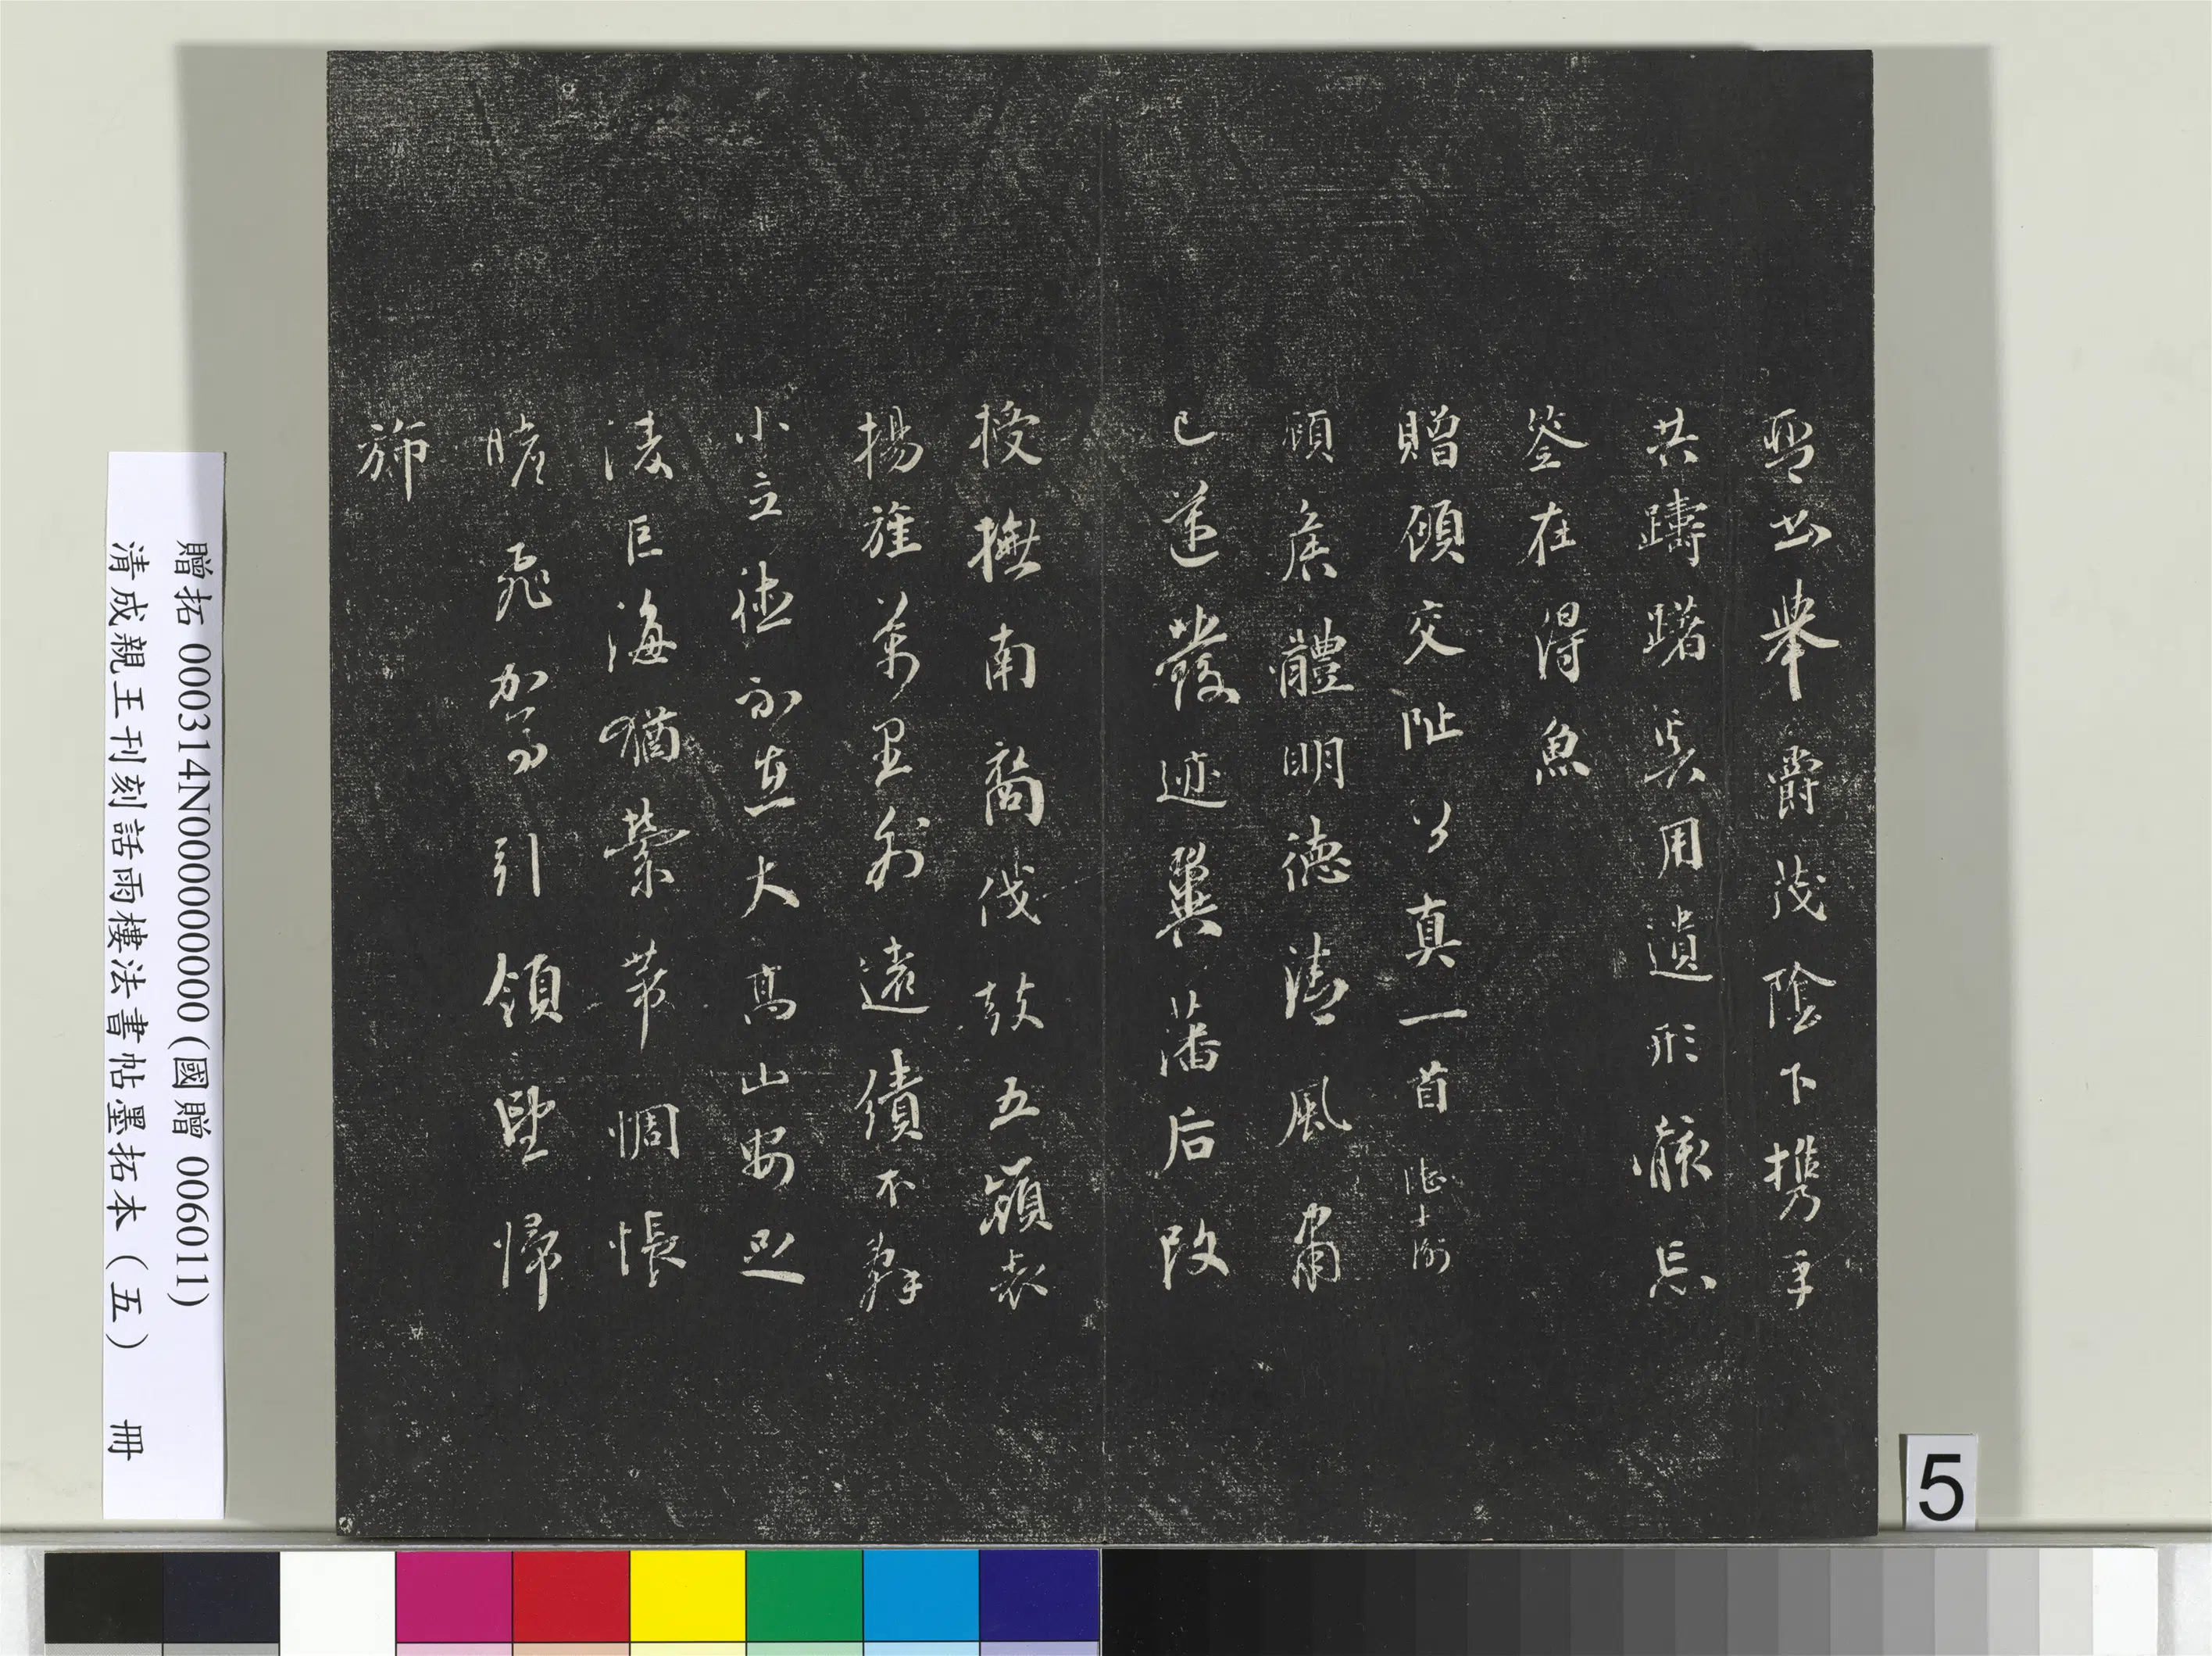 琴書舉爵茂陰下携手
共躊躇奚用遺形骸忘
筌在得魚
贈顧交阯公真一首 陸士衡
顧侯體明德清風肅
已邁發迹翼藩后改
授撫南裔伐鼓五嶺表
揚旌萬里外遠績不辭
小立德不在大高山安足
淩巨海猶縈帶惆悵
瞻飛駕引領望歸
旆
贈拓 000314N000000000 (國贈 006011)
清成親王刊刻話雨樓法書帖墨拓本（五） 冊
5